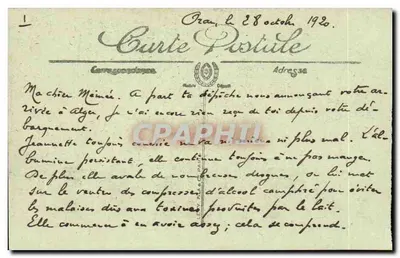 1
Oran, le 28 octobre 1920.
Carte Postale
Correspondance
Adresse
Ma chère Mémée. A part ta dépêche nous annonçant votre ar-
rivée à Alger, je n'ai encore rien reçu de toi depuis votre dé-
barquement.
CPAPHIL
Jeannette toujours ni mieux ni plus mal. L'al-
bumine persistant, elle continue toujours à ne pas manger.
De plus elle avale de nombreuses drogues, on lui met
sur le ventre des compresses d'alcool camphré pour éviter
les malaises dus aux toxines produites par le lait.
Elle commence à en avoir assez ; cela se comprend.